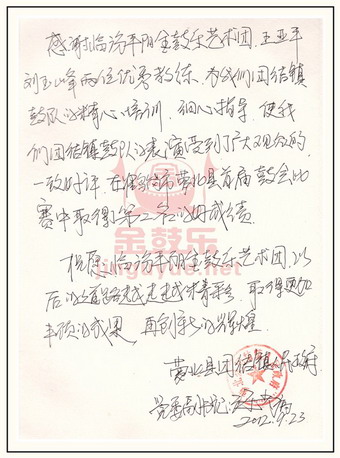 感谢临汾平阳金鼓乐艺术团,王亚平
刘玉峰两位优秀教练,为我们团结镇
鼓队的精心培训,细心指导,使我
们团结镇鼓队的表演受到了广大观众的
一致好评.在 市 县首届鼓会比
赛中取得了第二名的好成绩.
祝愿临汾平阳金鼓乐艺术团,以
后的道路越走越精彩,取得更加
丰硕的成果,再创新的辉煌.
县团结镇人民政府
党委副书记
2012.9.23
金鼓乐